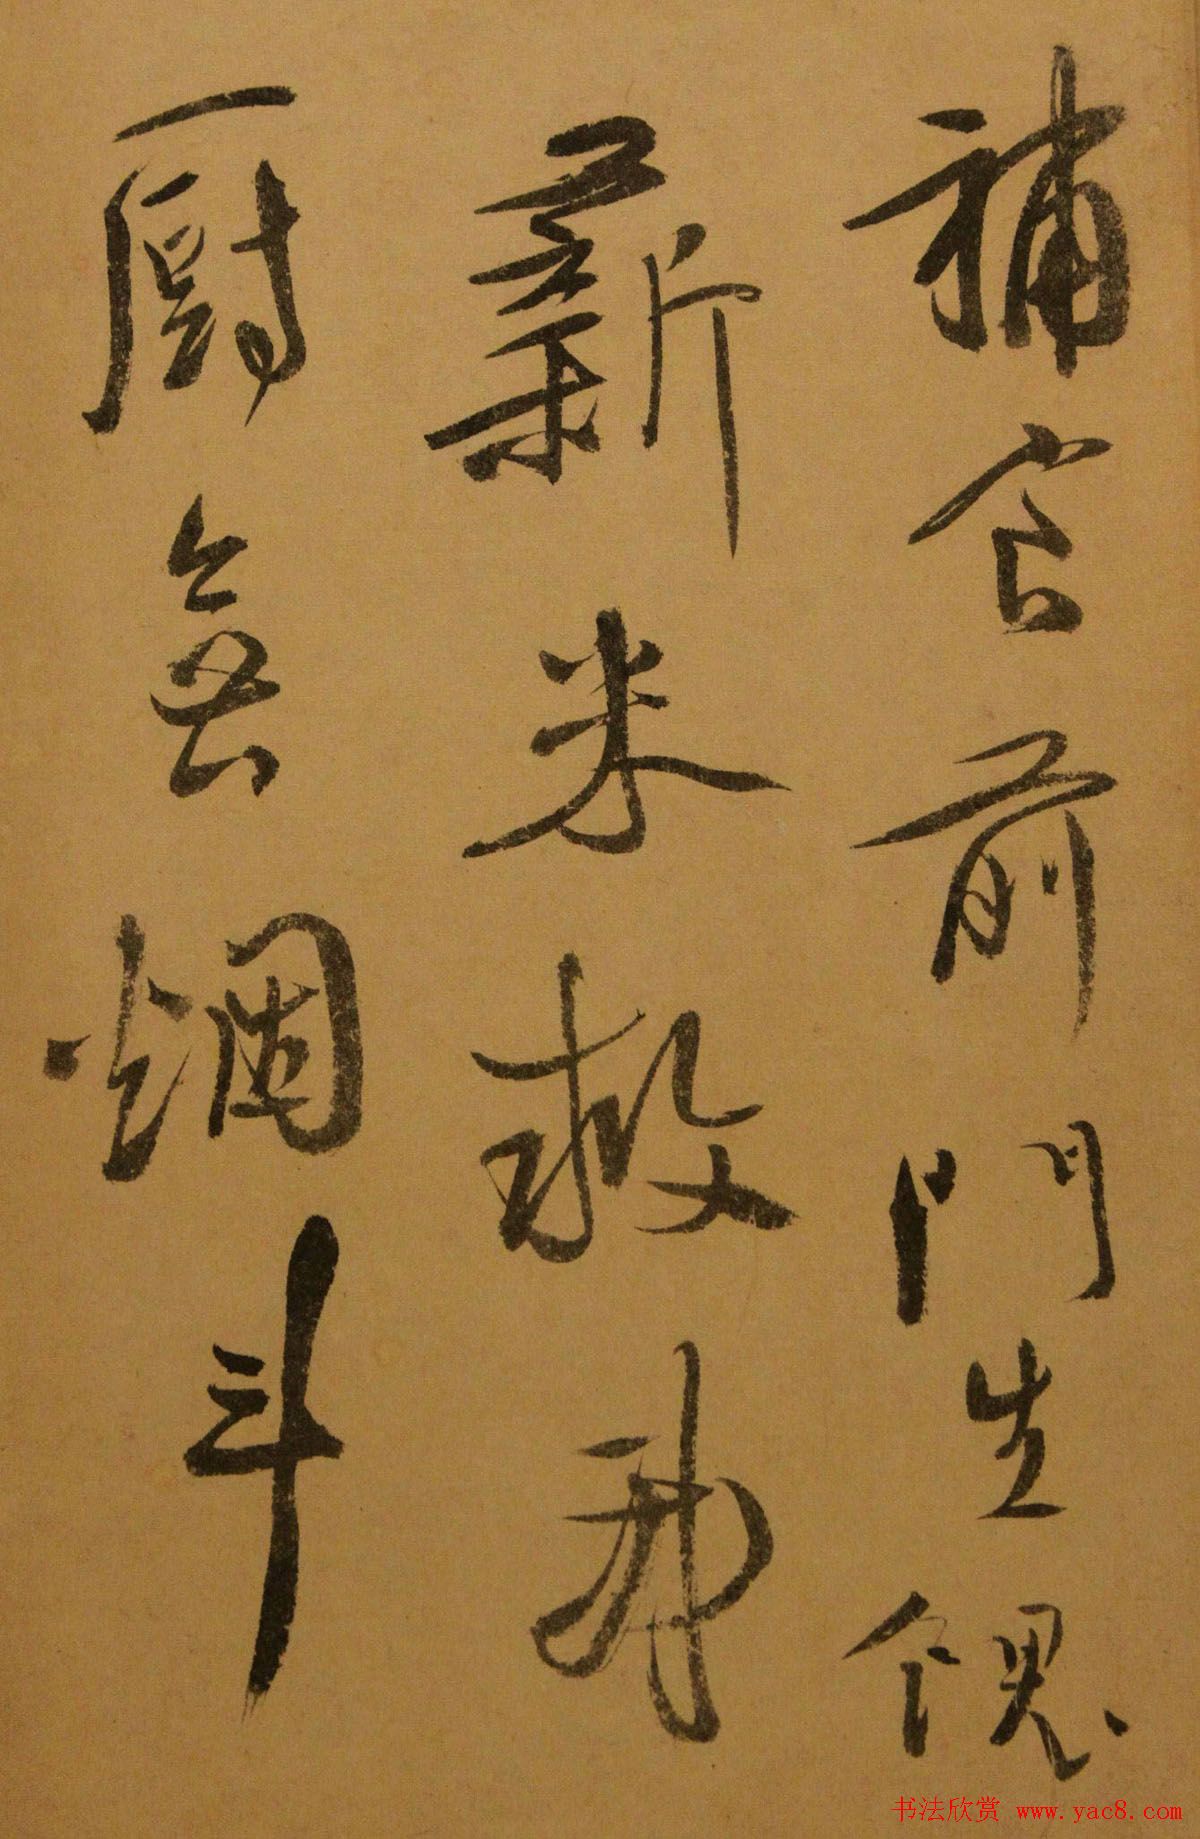 補官前門生餽
薪米救我
厨無烟斗
书法欣赏 www.yac8.com